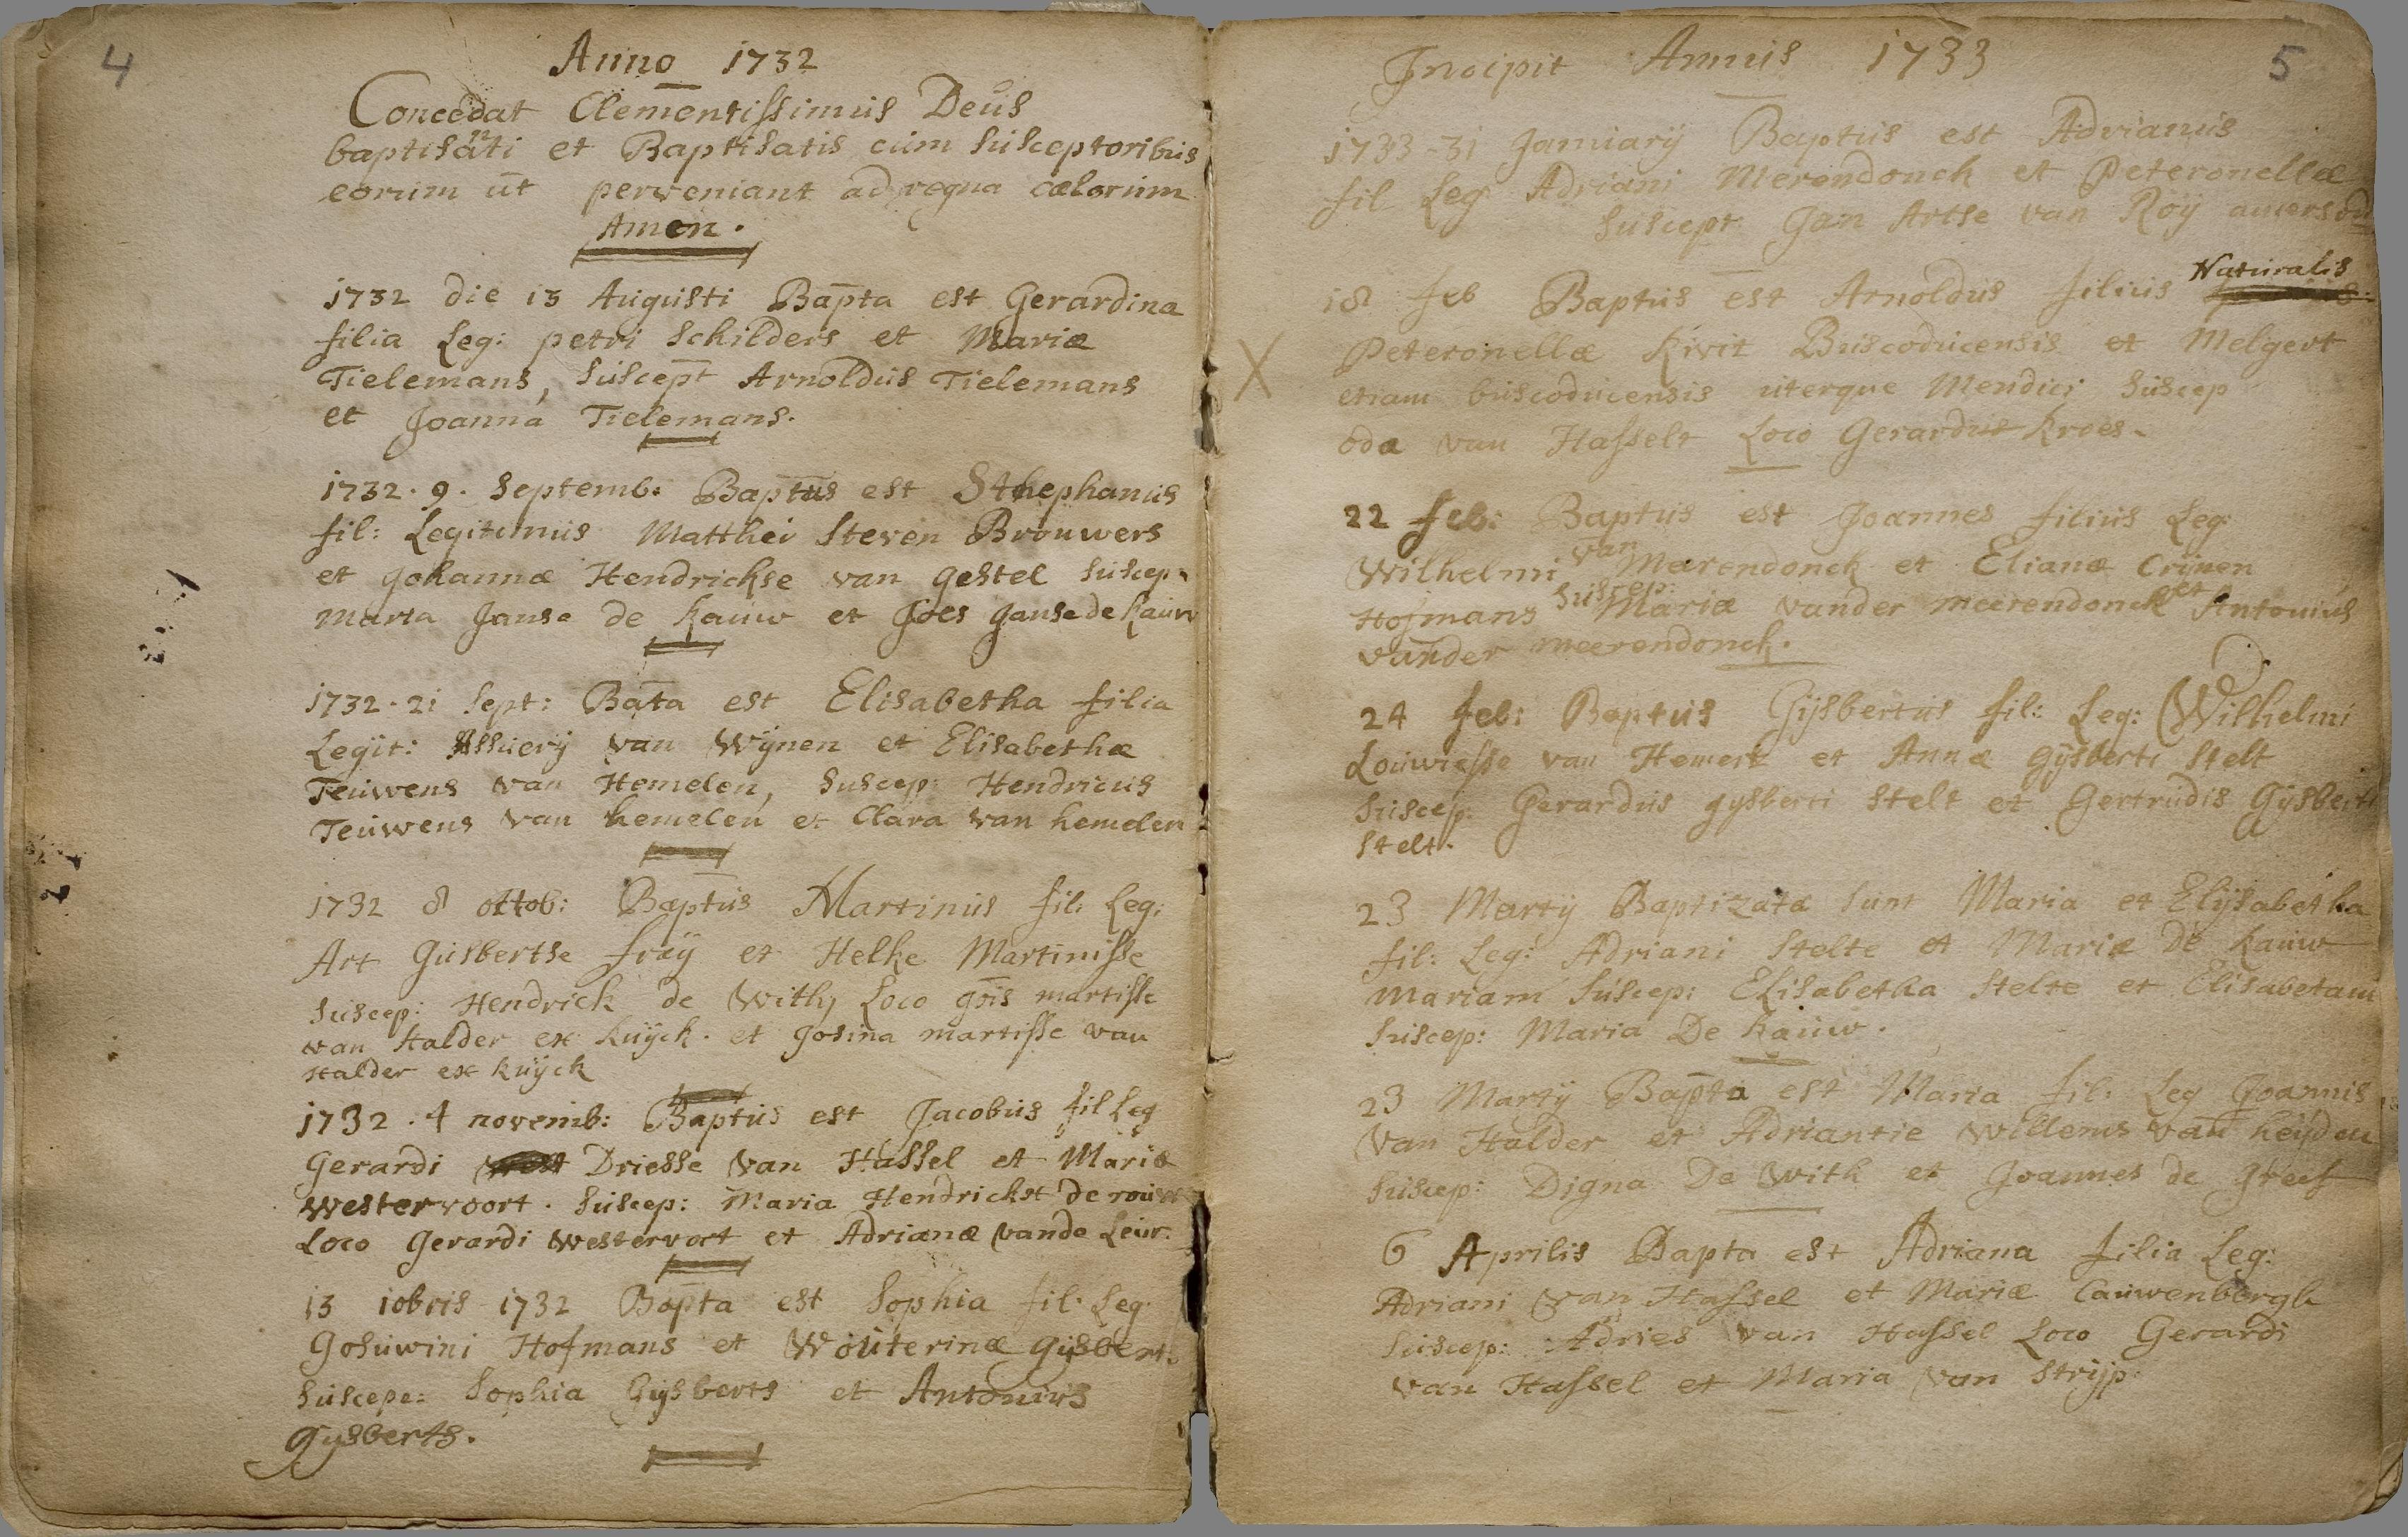 4
Anno 1732
Concedat Clementissimus Deus
baptisanti et Baptisatis cum susceptoribus
eorum ut perveniant ad regna cælorum
Amen.
1732 die 13 Augusti Bapta est Gerardina
filia Leg: petri Schilders et Mariæ
Tielemans, Suscept Arnoldus Tielemans
et Joanna Tielemans.
1732. 9. Septemb: Baptus est Sthephanus
fil: Legitimus Matthei Steven Brouwers
et Johannæ Hendrickse van gestel suscep.
Maria Janse de Kauw et Joes Janse de Kauw
1732. 21 Sept: Bata est Elisabetha filia
Legit: Assuerÿ van Wÿnen et Elisabethæ
Teuwens van Hemelen, Suscep: Hendricus
Teuwens van hemelen et Clara van hemelen
1732 8 ottob: Baptus Martinus fil: Leg:
Art Gisbertse fraÿ et Helke Martinisse
Suscep: Hendrick de With, Loco martisse
van Halder ex Kuÿck. et Josina martisse van
Halder ex kuÿck
1732. 4 novemb: Baptus est Jacobus fil Leg
Gerardi Driesse van Hassel et Mariæ
Westervoort. Suscep: Maria Hendrickse de
Loco Gerardi Westervort et Adrianæ vande Leur.
13 10bris 1732 Bapta est Sophia fil: Leg:
Gosuwini Hofmans et Wouterinæ Gijsberts
Suscepe: Sophia Gijsberts et Antonius
Gysberts.
5
Incipit Annus 1733
1733-31 Januarÿ Baptus est Adrianus
fil Leg Adriani Merendonck et Peteronellæ
Suscept Jan Artse van Roÿ
18 feb Baptus est Arnoldus filius Naturalis
X Peteronellæ Kivit Buscoducensis et Melgert
etiam buscoducensis uterque Mendici Suscep
oda van Hasselt Loco Gerardus Kroes.
22 feb: Baptus est Joannes filius Leg:
Wilhelmi van Merendonck et Elianæ Crÿnen
Hofmans suscep: Maria vander meerendonck et Antonius
vander meerendonck.
24 feb: Baptus Gijsbertus fil: Leg: Wilhelmi
Louwresse van Hemert et Annæ gÿsberti Stelt
Suscep: Gerardus gysberti Stelt et Gertrudis Gÿsberti
Stelt.
23 Martÿ Baptizatæ sunt Maria et Elÿsabetha
fil: Leg: Adriani Stelte et Mariæ De Kauw
Mariam Suscep: Elisabetha Stelte et Elisabetam
Suscep: Maria De Kauw.
23 Martÿ Bapta est Maria fil: Leg Joannis
van Halder et Adriantie Willems van heÿden
Suscep: Digna De With et Joannes de Greef
6 Aprilis Bapta est Adriana filia Leg:
Adriani van Hassel et Mariæ Cauwenbergh
Suscep: Adries van Hassel Loco Gerardi
van Hassel et Maria van Strijp.